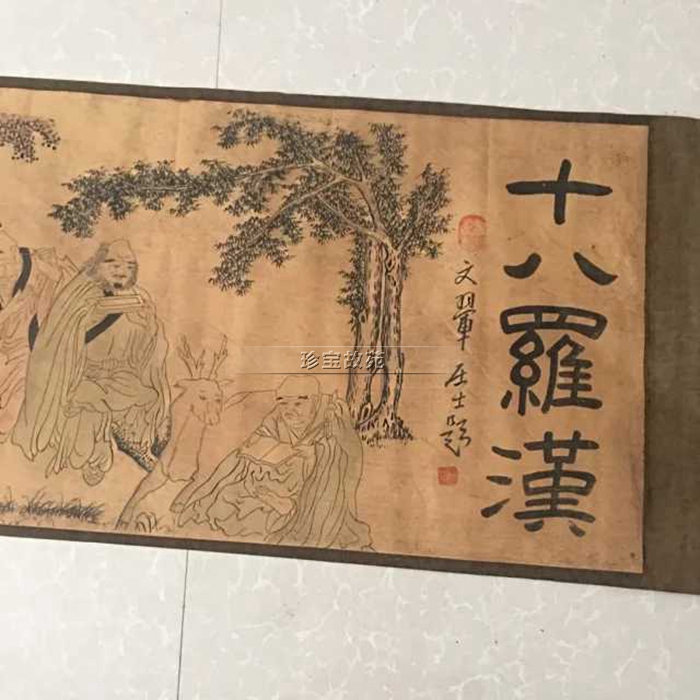 十八羅漢
文翬居士题
珍宝故苑